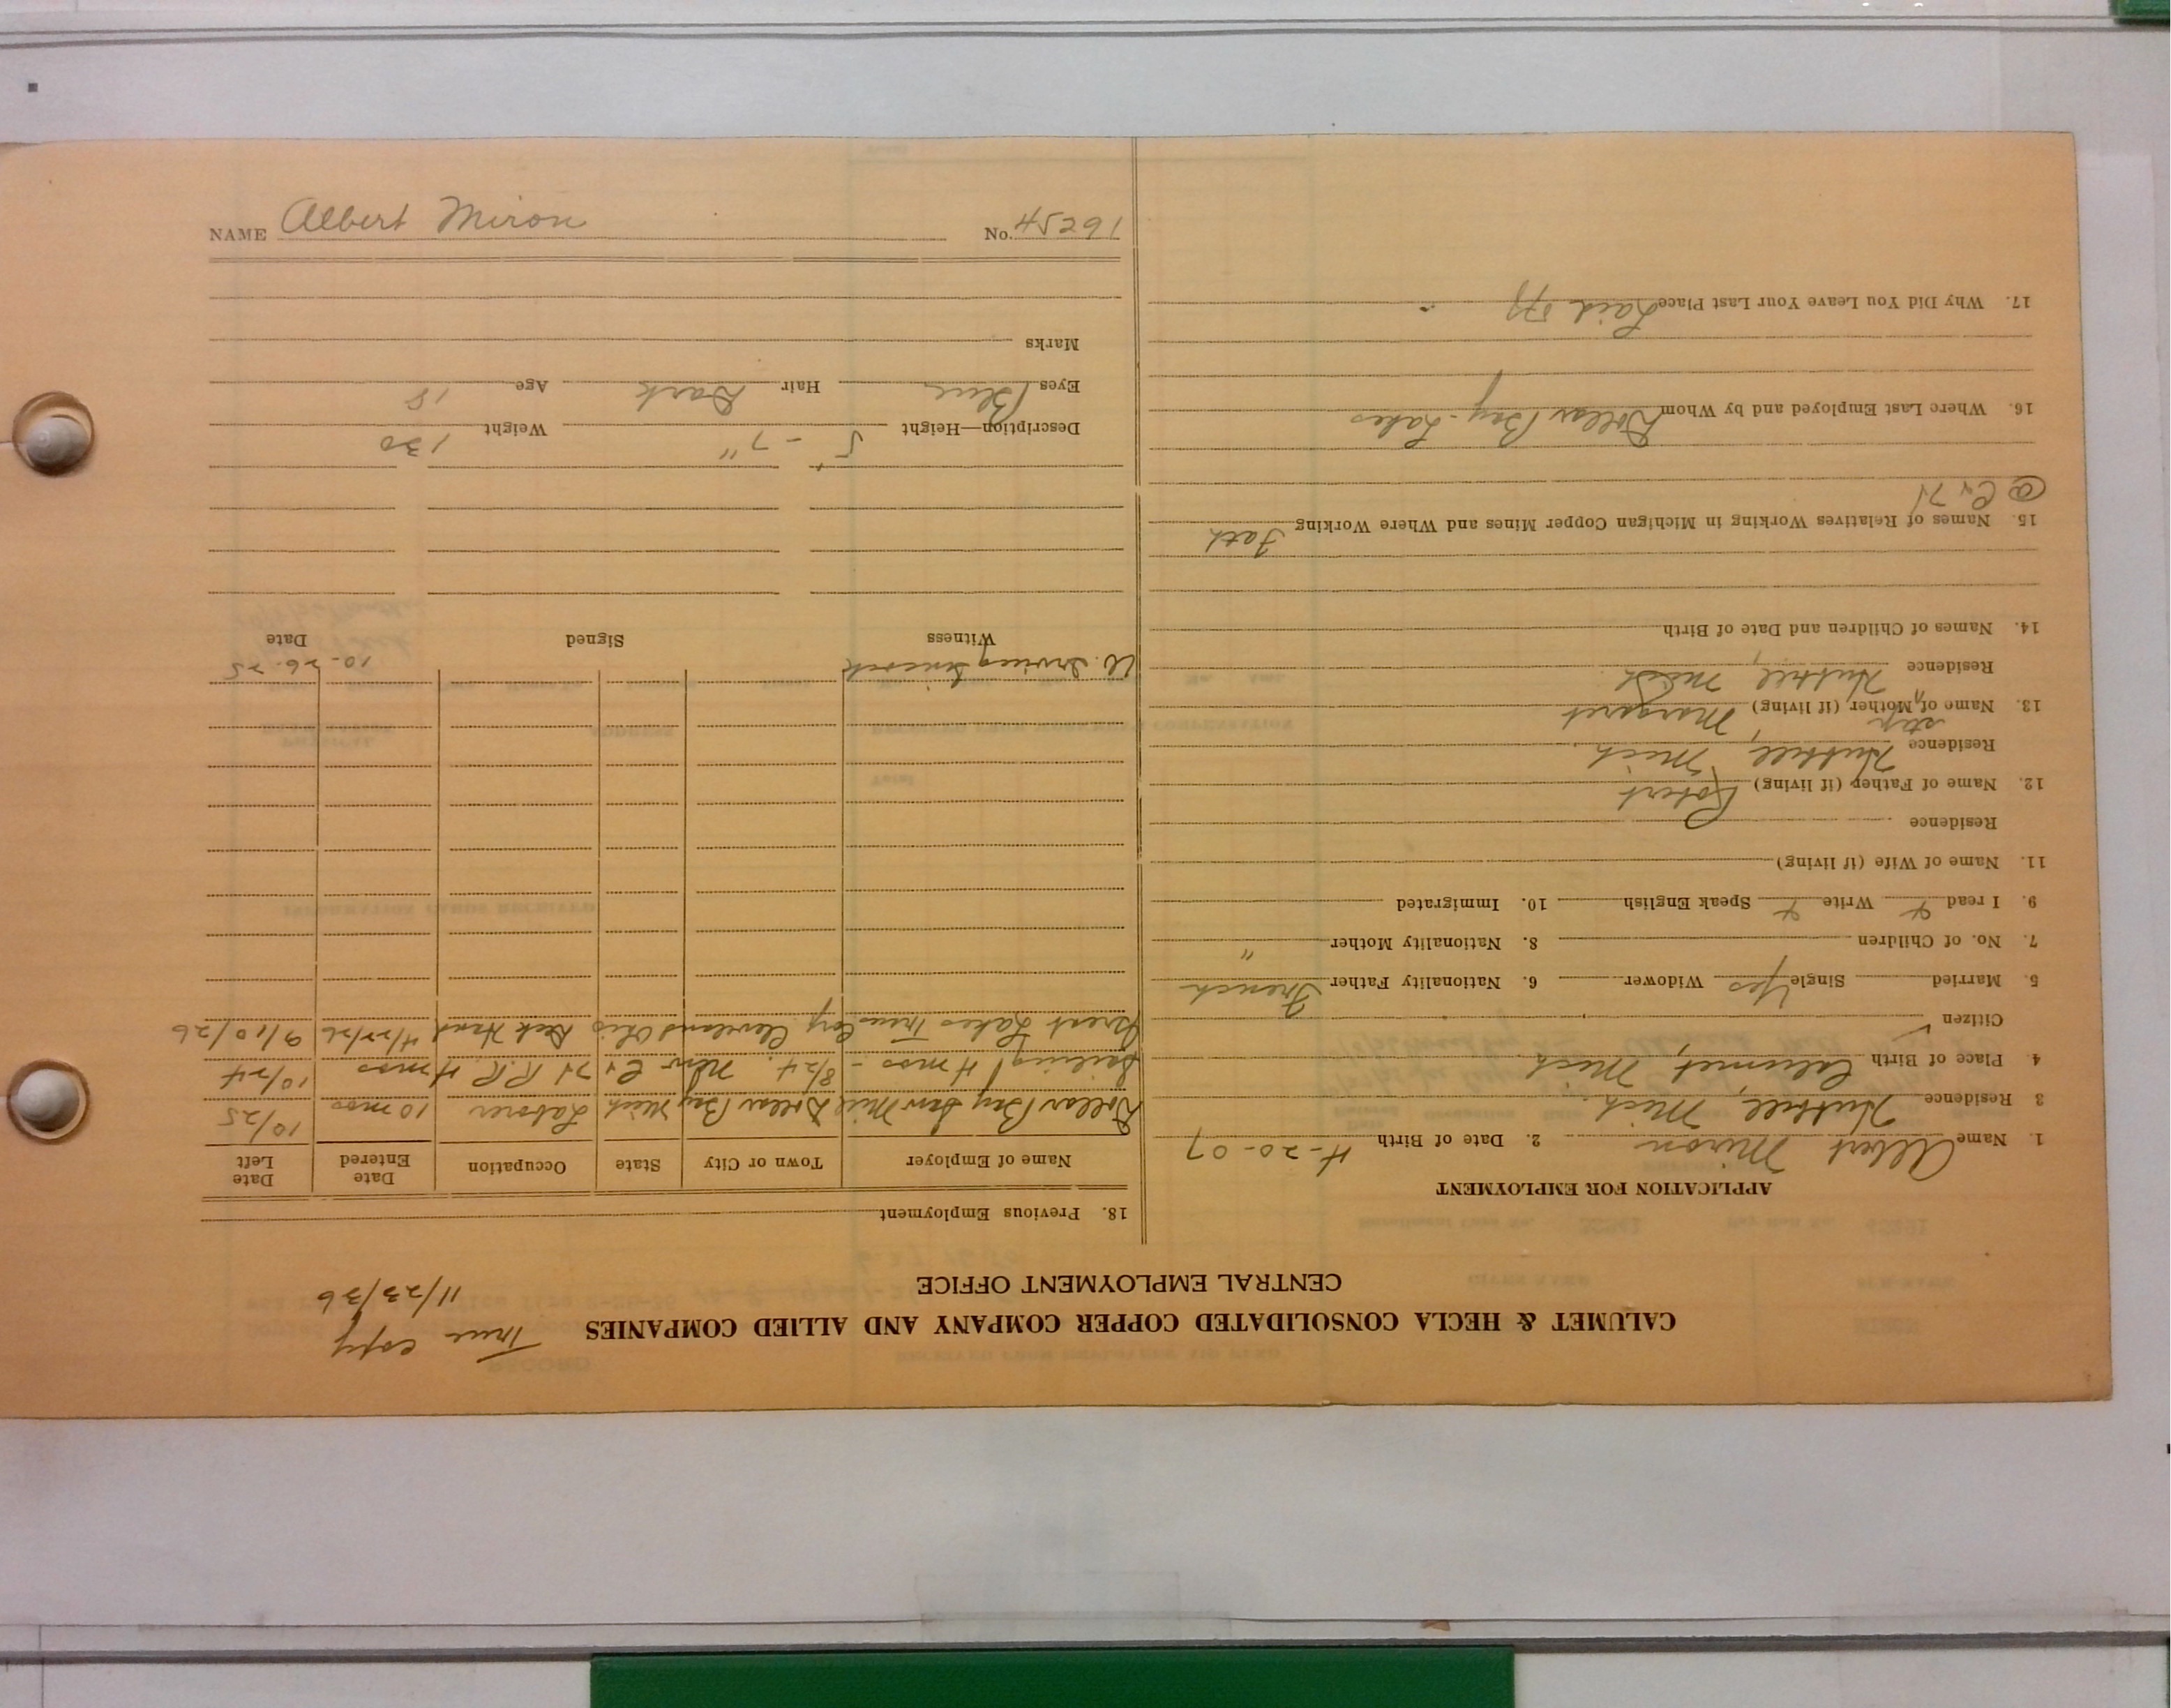 CALUMET & HECLA CONSOLIDATED COPPER COMPANY AND ALLIED COMPANIES
True copy
11/23/36
CENTRAL EMPLOYMENT OFFICE
APPLICATION FOR EMPLOYMENT
1. Name Albert Miron 2. Date of Birth 4-20-07
3 Residence Hubbell, Mich.
4. Place of Birth Calumet, Mich
Citizen ✓
5. Married Single Yes Widower 6. Nationality Father French
7. No. of Children 8. Nationality Mother "
9. I read Write Speak English 10. Immigrated
11. Name of Wife (if living)
Residence
12. Name of Father (if living) Robert
Residence Hubbell, Mich.
step
13. Name of Mother, (if living) Margaret
Residence Hubbell, Mich
14. Names of Children and Date of Birth
15. Names of Relatives Working in Michigan Copper Mines and Where Working Fath
@ C & H
16. Where Last Employed and by Whom Dollar Bay - Lakes
17. Why Did You Leave Your Last Place Laid off
18. Previous Employment
Name of Employer Town or City State Occupation Date Entered Date Left
Dollar Bay Saw Mill Dollar Bay Mich Laborer 10 mos 10/25
Sailing 4 mos - 8/24. C & H R.R 4 mos 10/24
Great Lakes Trans Corp. Cleveland Ohio Deck Hand 4/22/26 9/10/26
10-26-25
Witness Signed Date
Description—Height 5' - 7" Weight 130
Eyes Blue Hair Dark Age 18
Marks
NAME Albert Miron No. 16254